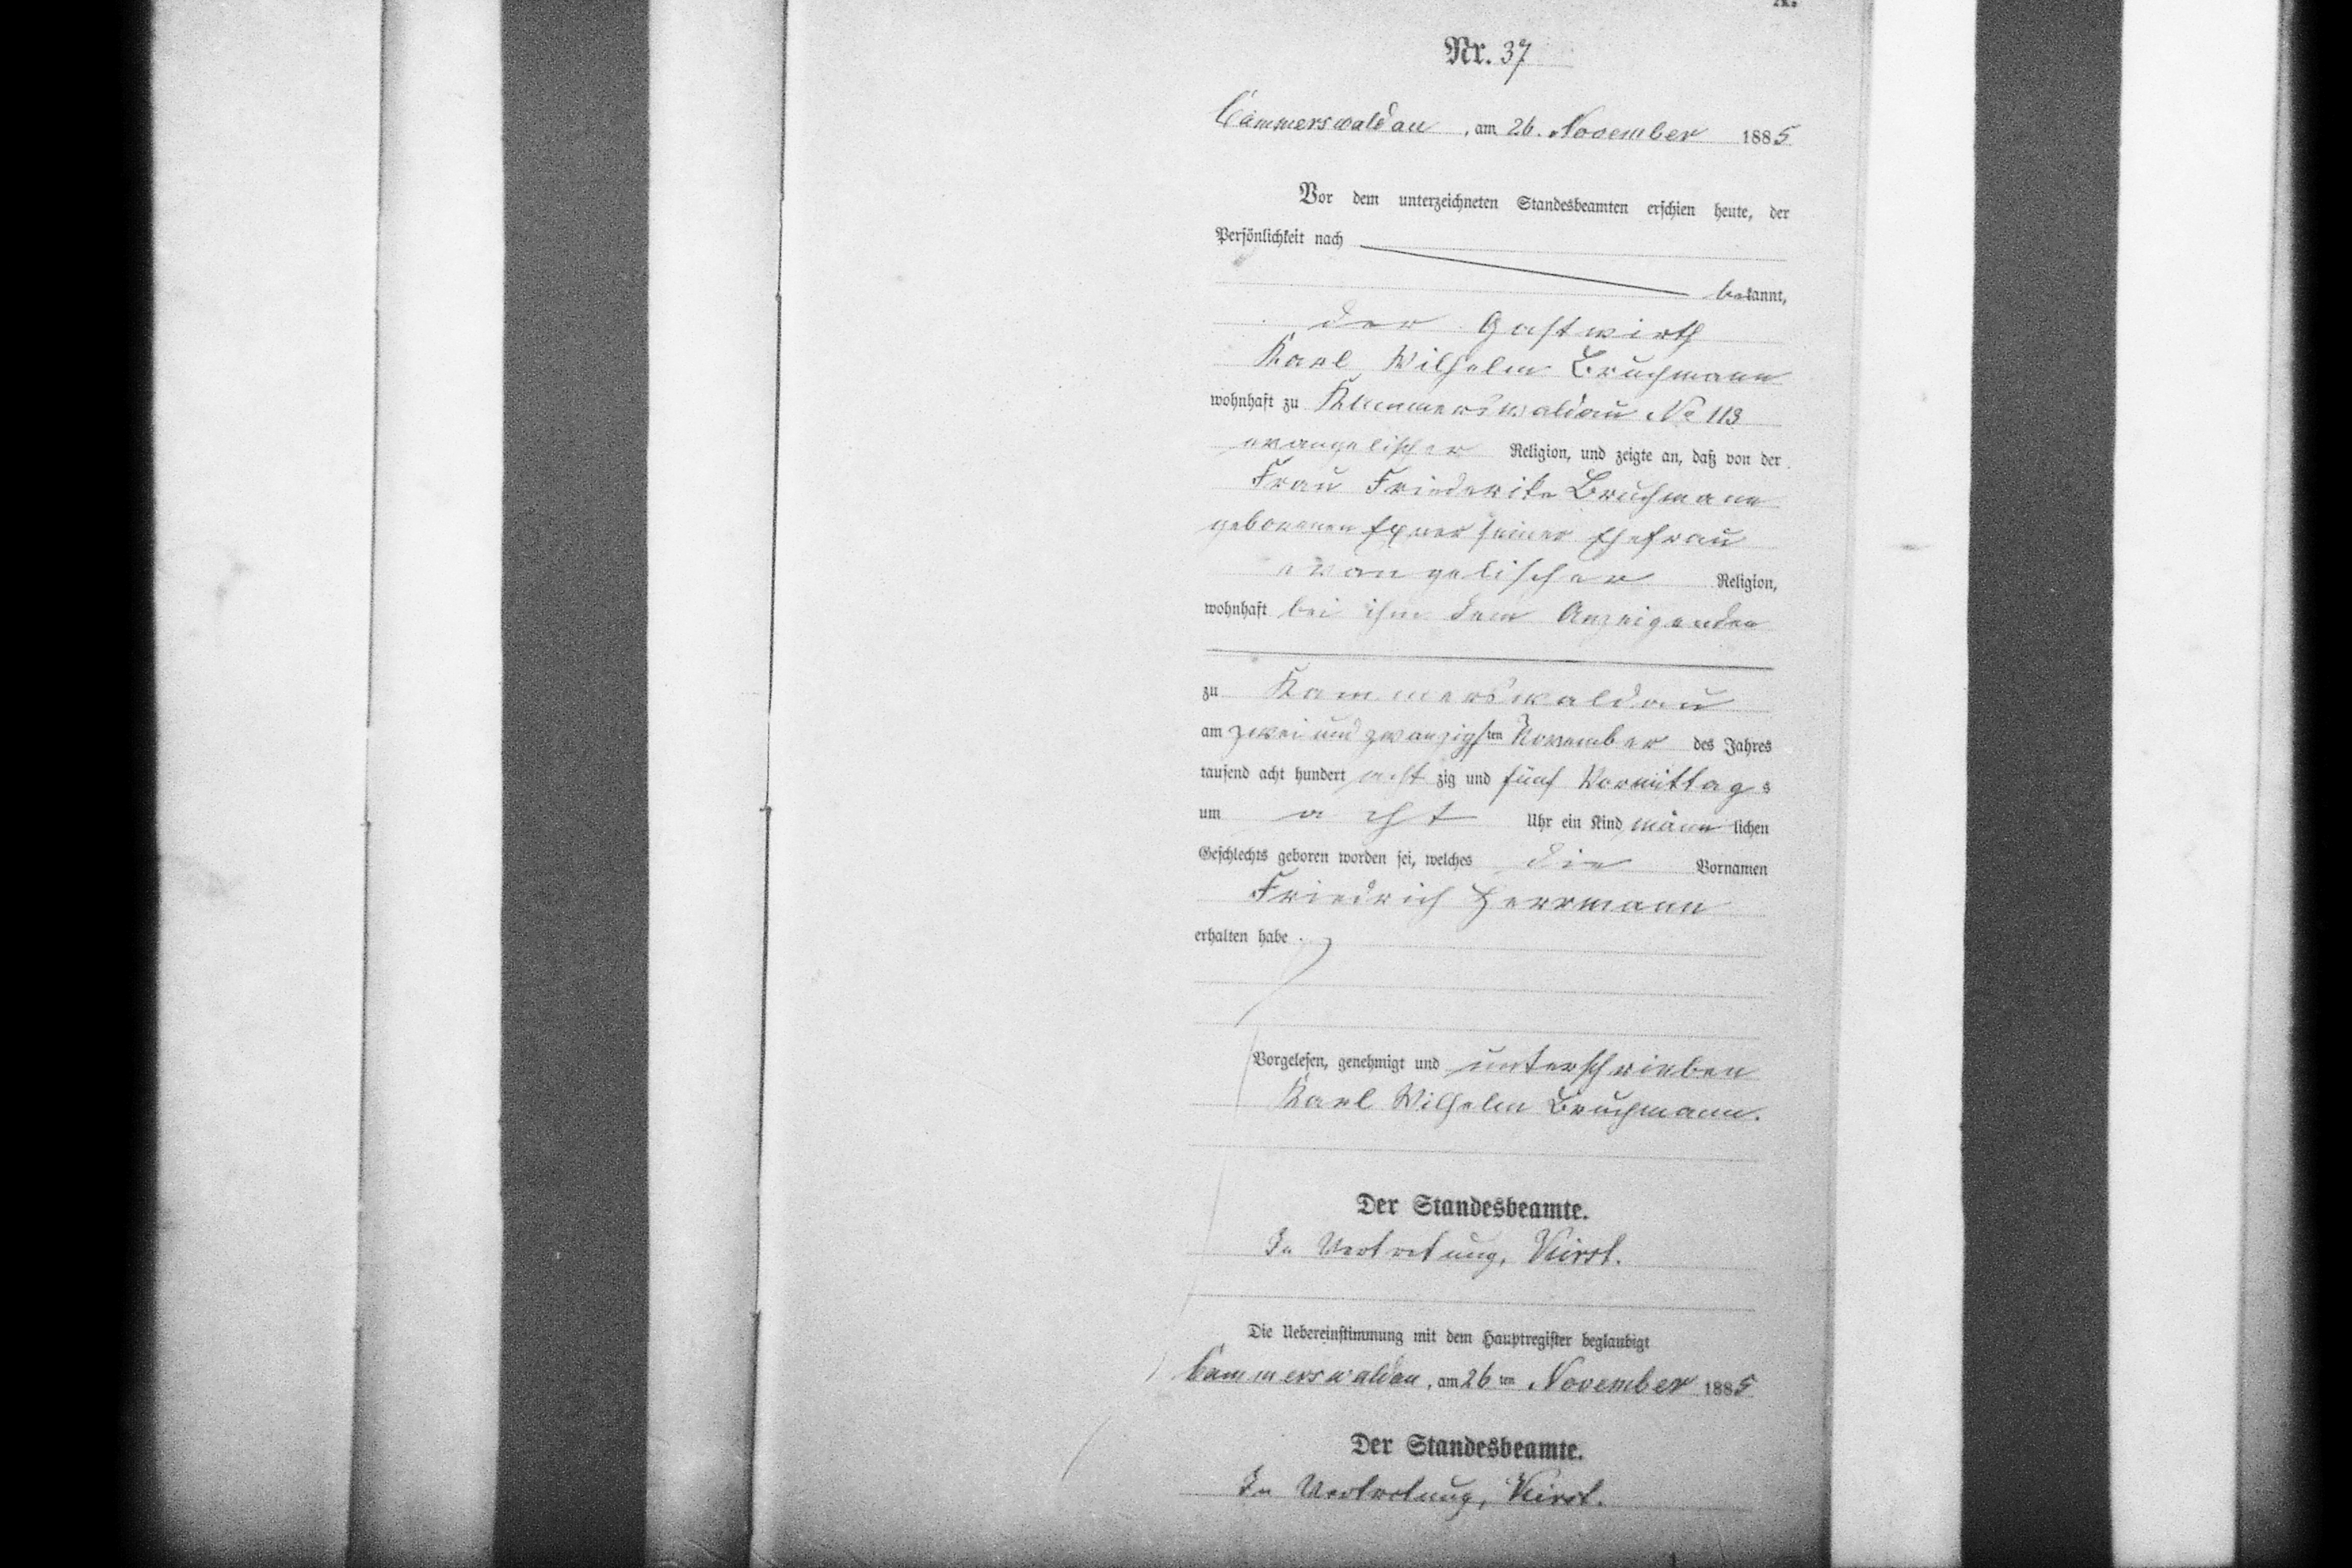 A.
Nr. 37
Cammerswaldau, am 26. November 1885
Vor dem unterzeichneten Standesbeamten erschien heute, der
Persönlichkeit nach
bekannt,
der Gastwirth
Karl Wilhelm Bruchmann
wohnhaft zu Kammerswaldau No 113
evangelischer Religion, und zeigte an, daß von der
Frau Friederike Bruchmann
geborenen Exner seiner Ehefrau
evangelischer Religion,
wohnhaft bei ihm dem Anzeigenden
zu Kammerswaldau
am zwei und zwanzigsten November des Jahres
tausend acht hundert achtzig und fünf Vormittags
um acht Uhr ein Kind männlichen
Geschlechts geboren worden sei, welches die Vornamen
Friedrich Herrmann
erhalten habe.
Vorgelesen, genehmigt und unterschrieben
Karl Wilhelm Bruchmann.
Der Standesbeamte.
In Vertretung,
Die Uebereinstimmung mit dem Hauptregister beglaubigt
Cammerswaldau, am 26ten November 1885
Der Standesbeamte.
In Vertretung,